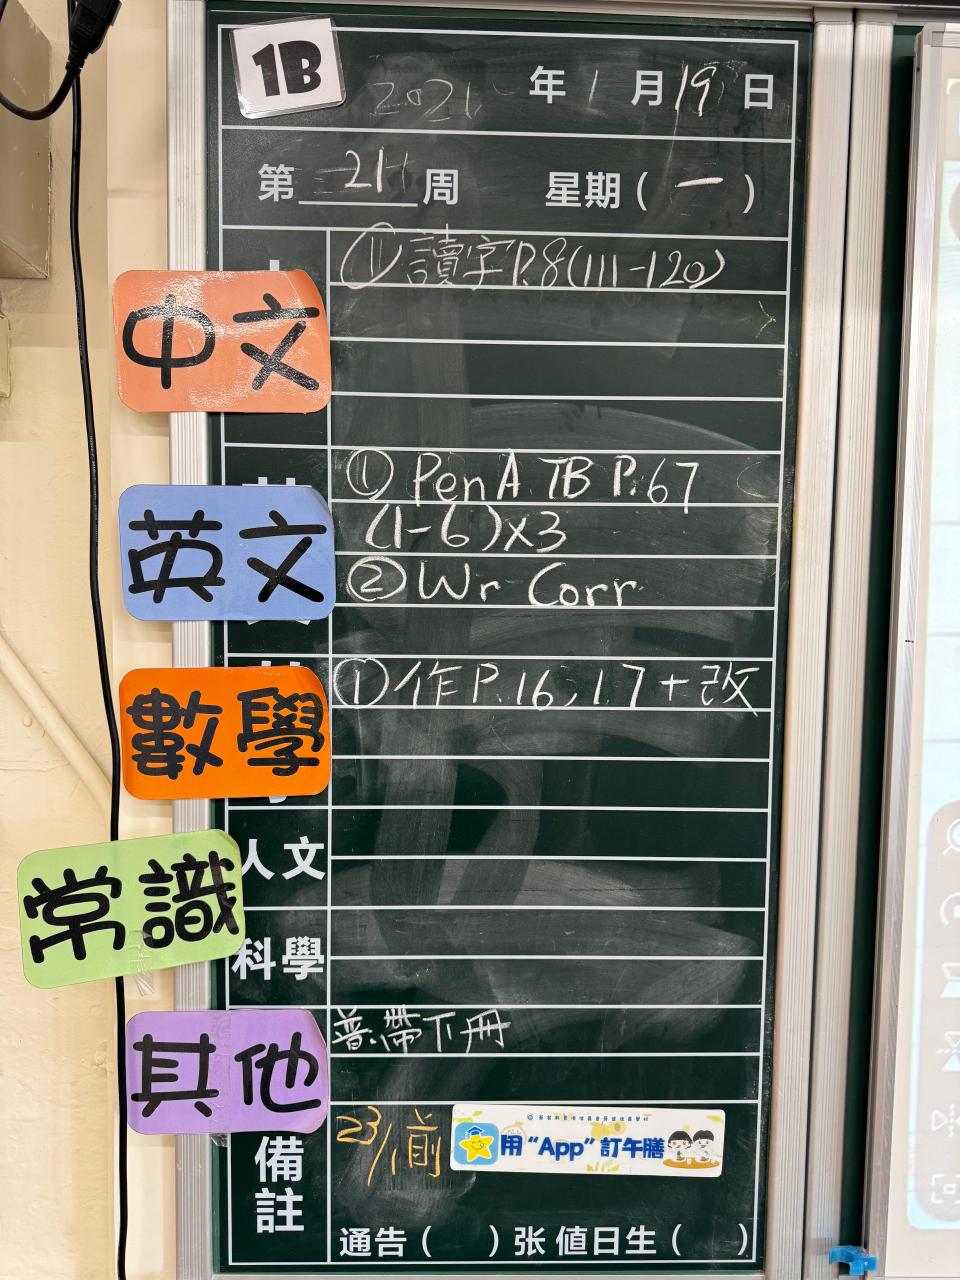 1B
2021 年 1 月 19 日
第 21 周 星期 ( 一 )
中文
① 讀字 P.8 (111-120)
英文
① Pen A TB P.67
(1-6) x3
② Wr Corr
數學
① 作 P.16, 17 + 改
常識
人文
科學
其他
普:帶下冊
備註
23/1前
用 “App” 訂午膳
通告 ( ) 张 値日生 ( )